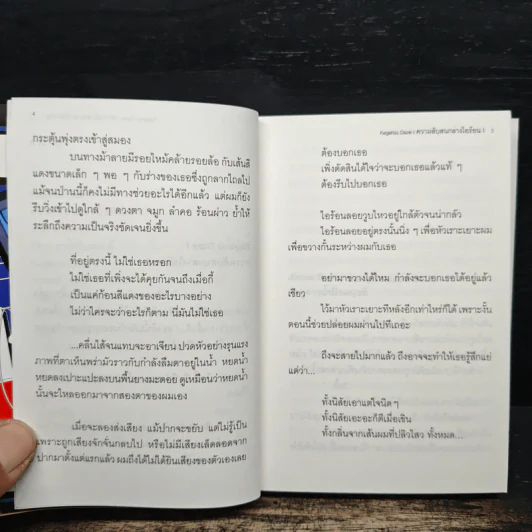 4
กระตุ้นพุ่งตรงเข้าสู่สมอง
บนทางม้าลายมีรอยไหม้คล้ายรอยล้อ กับเส้นสี
แดงขนาดเล็ก ๆ พอ ๆ กับร่างของเธอซึ่งถูกลากไถลไป
แม้จนป่านนี้ก็คงไม่มีทางช่วยอะไรได้อีกแล้ว แต่ผมก็ยัง
รีบวิ่งเข้าไปดูใกล้ ๆ ดวงตา จมูก ลำคอ ร้อนผ่าว ย้ำให้
ระลึกถึงความเป็นจริงชัดเจนยิ่งขึ้น
ที่อยู่ตรงนี้ ไม่ใช่เธอหรอก
ไม่ใช่เธอที่เพิ่งจะได้คุยกันจนถึงเมื่อกี้
เป็นแค่ก้อนสีแดงของอะไรบางอย่าง
ไม่ว่าใครจะว่าอะไรก็ตาม นี่มันไม่ใช่เธอ
...คลื่นไส้จนแทบจะอาเจียน ปวดหัวอย่างรุนแรง
ภาพที่ตาเห็นพร่ามัวราวกับกำลังลืมตาอยู่ในน้ำ หยดน้ำ
หยดลงเปาะแปะลงบนพื้นยางมะตอย ดูเหมือนว่าหยดน้ำ
นั้นจะไหลออกมาจากสองตาของผมเอง
เมื่อจะลองส่งเสียง แม้ปากจะขยับ แต่ไม่รู้เป็น
เพราะถูกเสียงจักจั่นกลบไป หรือไม่มีเสียงเล็ดลอดจาก
ปากมาตั้งแต่แรกแล้ว ผมถึงได้ไม่ได้ยินเสียงของตัวเองเลย
Kagerou Daze I ความสับสนกลางไอร้อน I 5
ต้องบอกเธอ
เพิ่งตัดสินได้ใจว่าจะบอกเธอแล้วแท้ ๆ
ต้องรีบไปบอกเธอ
ไอร้อนลอยวูบไหวอยู่ใกล้ตัวจนน่ากลัว
ไอร้อนลอยอยู่ตรงนั้นนิ่ง ๆ เพื่อหัวเราะเยาะผม
เพื่อขวางกั้นระหว่างผมกับเธอ
อย่ามาขวางได้ไหม กำลังจะบอกเธอได้อยู่แล้ว
เชียว
ไว้มาหัวเราะเยาะทีหลังอีกเท่าไหร่ก็ได้ เพราะงั้น
ตอนนี้ช่วยปล่อยผมผ่านไปทีเถอะ
ถึงจะสายไปมากแล้ว ถึงอาจจะทำให้เธอรู้สึกแย่
แต่ว่า...
ทั้งนิสัยเอาแต่ใจนิด ๆ
ทั้งนิสัยเอะอะก็ดีที่เมื่อเขิน
ทั้งกลิ่นจากเส้นผมที่ปลิวไสว ทั้งหมด...